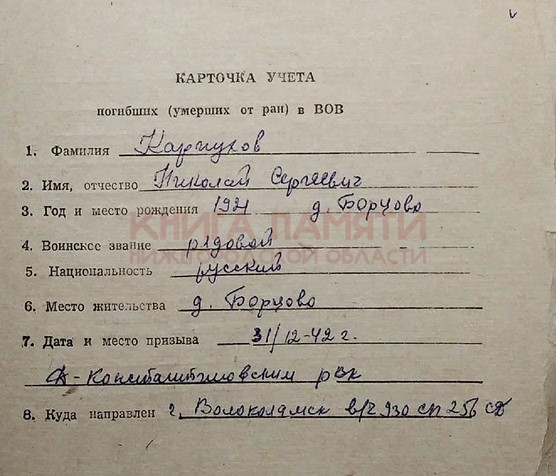 КАРТОЧКА УЧЕТА
погибших (умерших от ран) в ВОВ
1. Фамилия Карпухов
2. Имя, отчество Николай Сергеевич
3. Год и место рождения 1921 д. Борцово
КНИГА ПАМЯТИ
4. Воинское звание рядовой
НИЖЕГОРОДСКОЙ ОБЛАСТИ
5. Национальность русский
6. Место жительства д. Борцово
7. Дата и место призыва 31/12-42 г.
Д-Константиновским рвк
8. Куда направлен г. Волоколамск в/ч 930 сп 256 сд